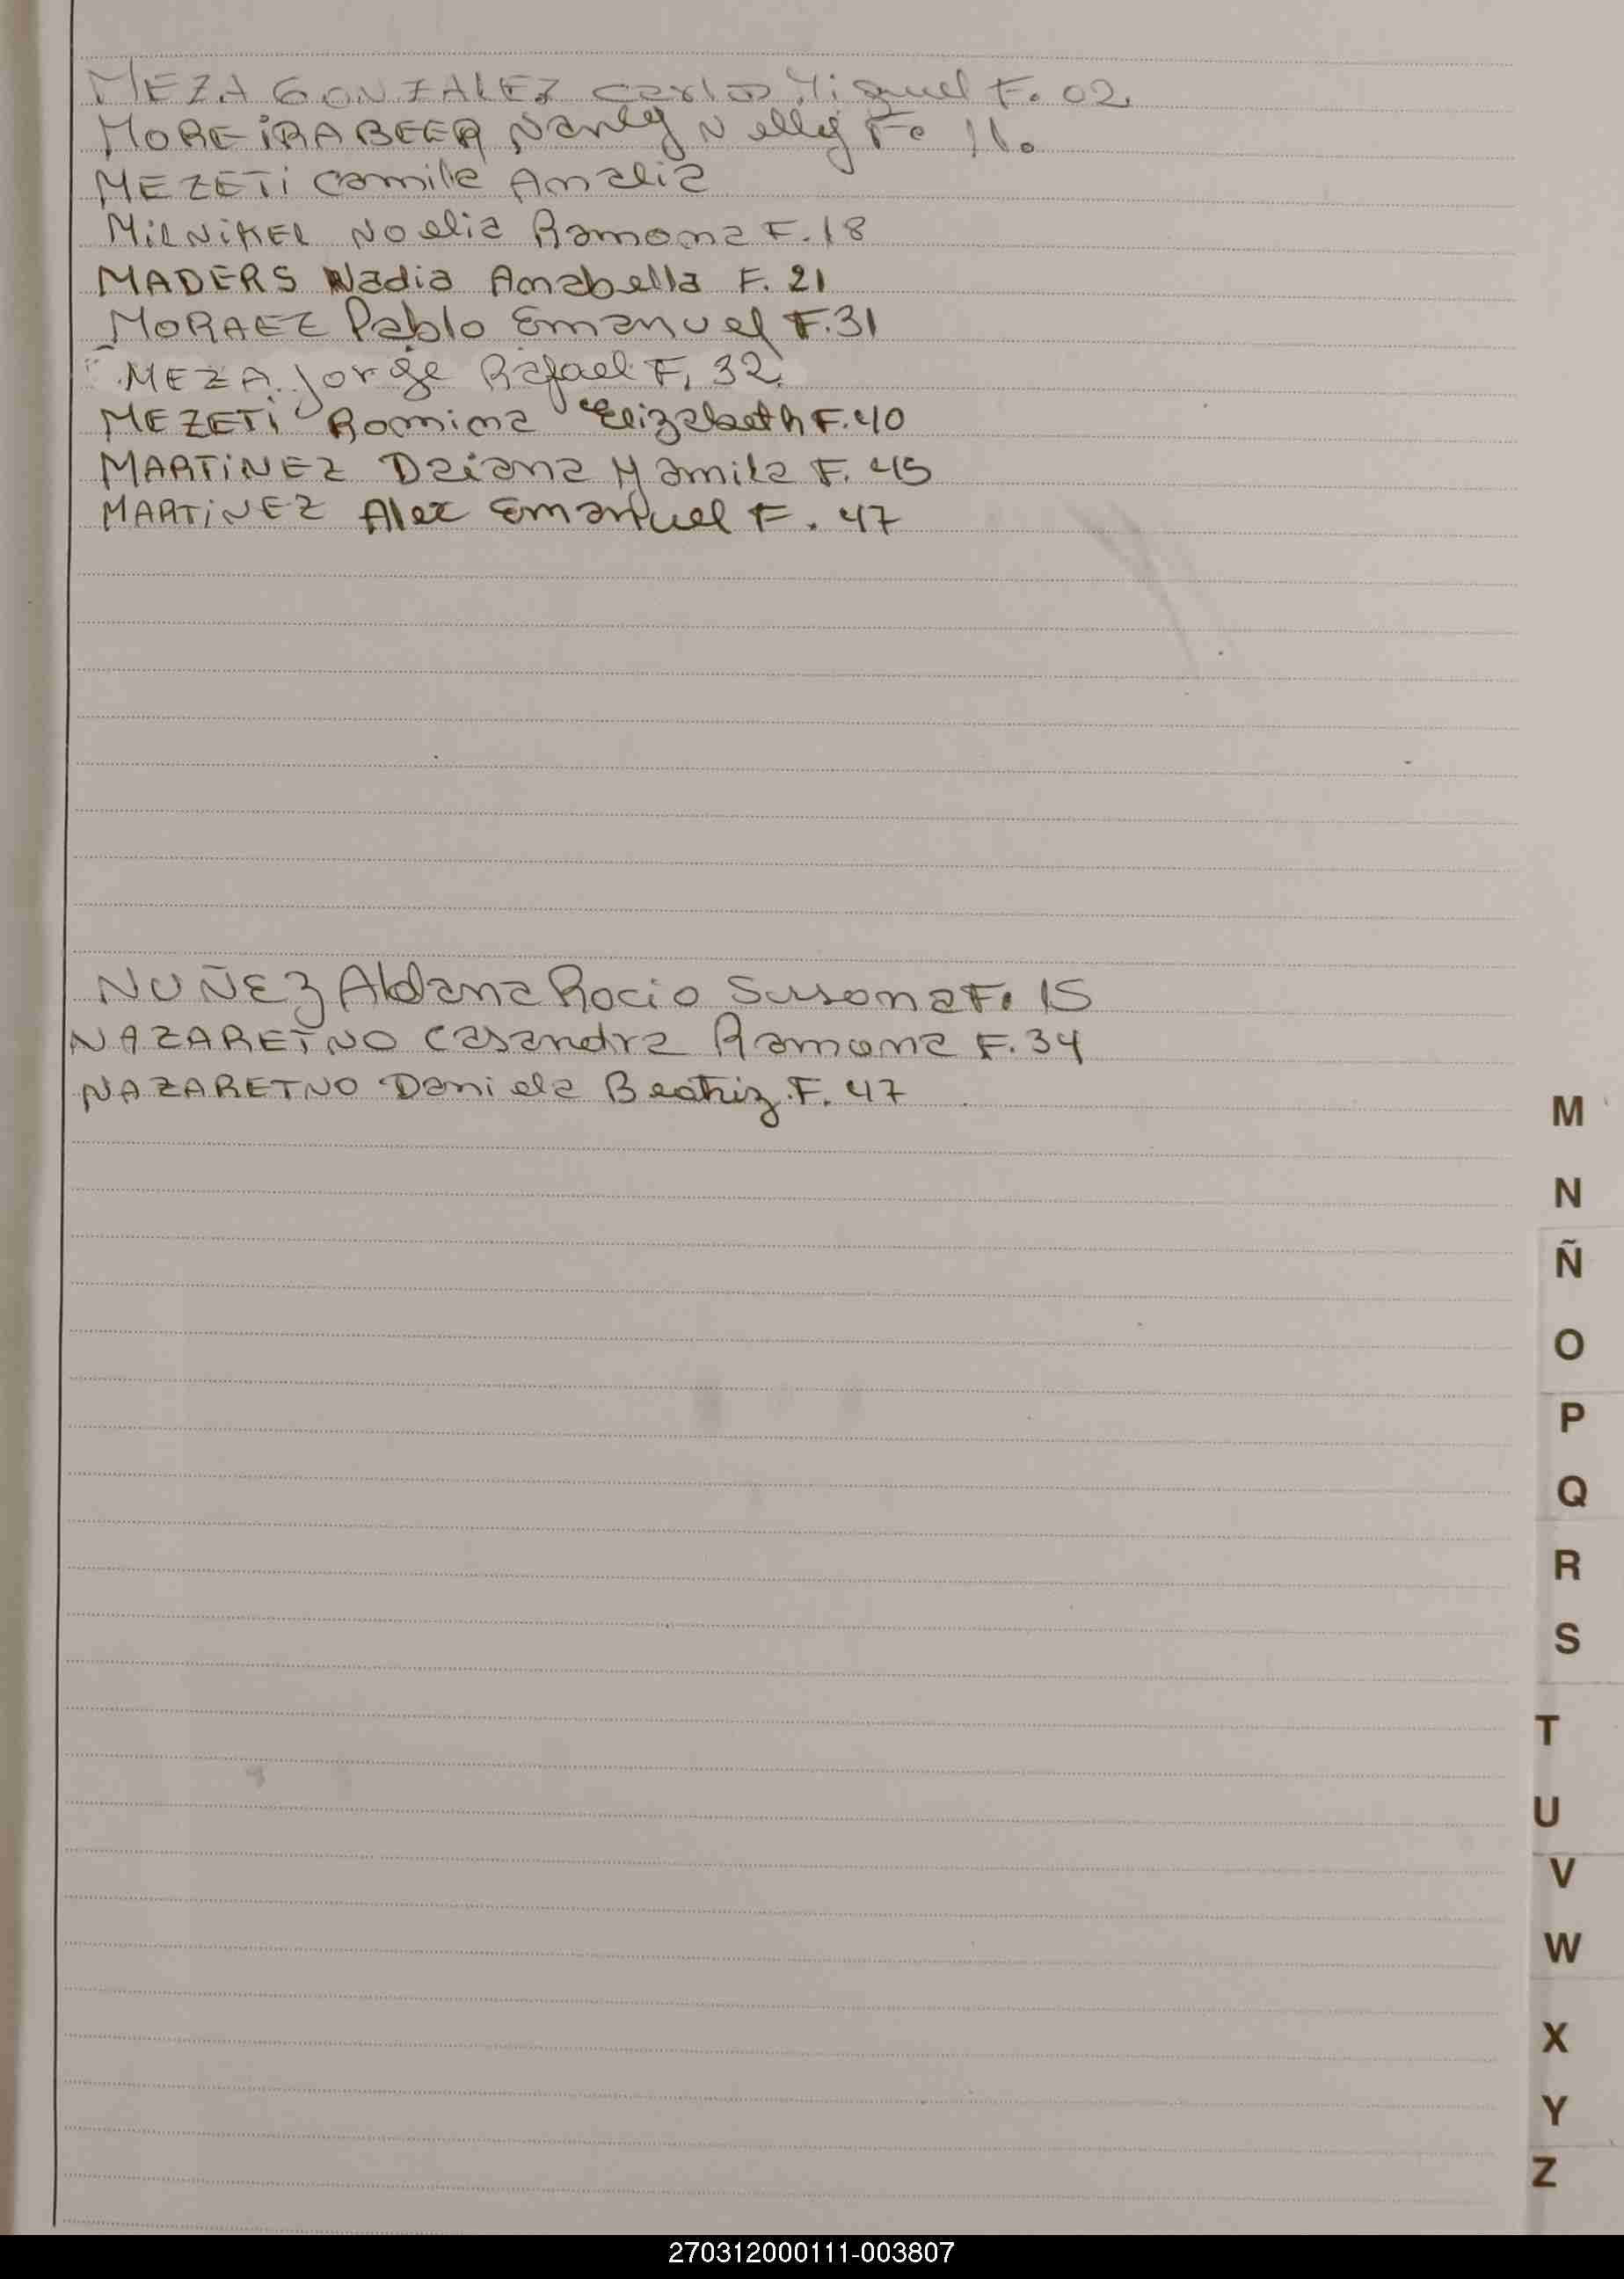 MEZA GONZALEZ Carlos Miguel F. 02.
MOREIRA BEER Nancy Nelly F. 11.
MEZETI Camila Analia
MILNIKEL Noelia Ramona F. 18
MADERS Nadia Anabella F. 21
MORAEZ Pablo Emanuel F. 31
MEZA Jorge Rafael F. 32.
MEZETI Romina Elizabeth F. 40
MARTINEZ Daiana Yamila F. 45
MARTINEZ Alex Emanuel F. 47
NUÑEZ Aldana Rocio Susana F. 15
NAZARETNO Casandra Ramona F. 34
NAZARETNO Daniela Beatriz F. 47
M
N
Ñ
O
P
Q
R
S
T
U
V
W
X
Y
Z
270312000111-003807